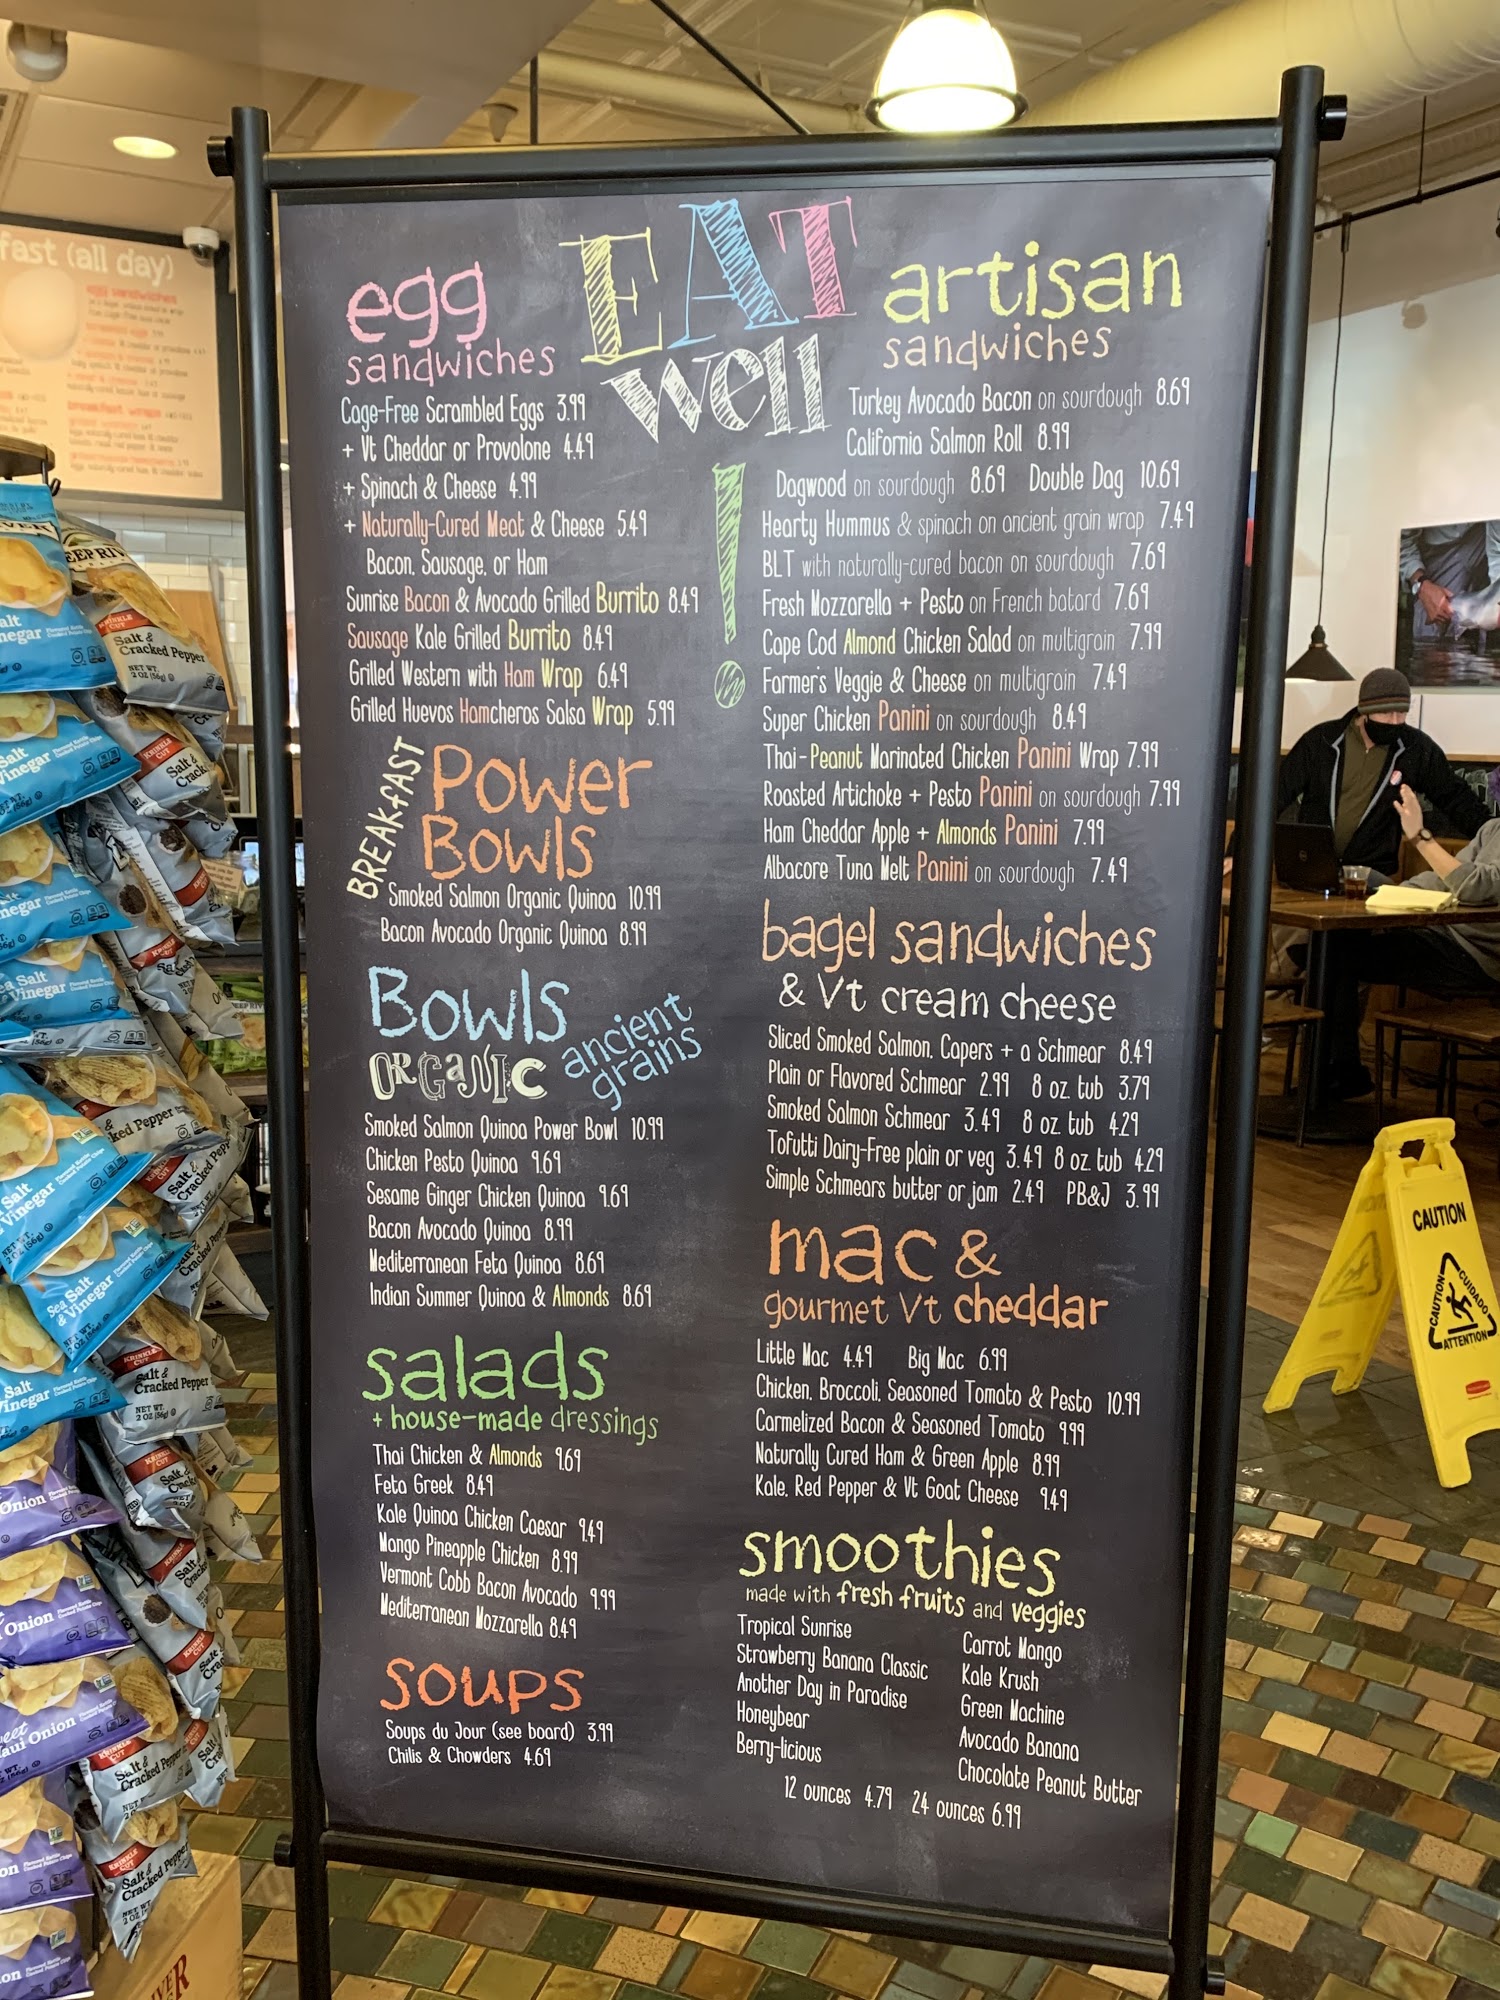 EAT
well
!
egg
sandwiches
Cage-Free Scrambled Eggs 3.99
+ Vt Cheddar or Provolone 4.49
+ Spinach & Cheese 4.99
+ Naturally-Cured Meat & Cheese 5.49
Bacon, Sausage, or Ham
Sunrise Bacon & Avocado Grilled Burrito 8.49
Sausage Kale Grilled Burrito 8.49
Grilled Western with Ham Wrap 6.49
Grilled Huevos Hamcheros Salsa Wrap 5.99
BREAKfAST
Power
Bowls
Smoked Salmon Organic Quinoa 10.99
Bacon Avocado Organic Quinoa 8.99
Bowls
ORGaNiC
ancient
grains
Smoked Salmon Quinoa Power Bowl 10.99
Chicken Pesto Quinoa 9.69
Sesame Ginger Chicken Quinoa 9.69
Bacon Avocado Quinoa 8.99
Mediterranean Feta Quinoa 8.69
Indian Summer Quinoa & Almonds 8.69
salads
+ house-made dressings
Thai Chicken & Almonds 9.69
Feta Greek 8.49
Kale Quinoa Chicken Caesar 9.49
Mango Pineapple Chicken 8.99
Vermont Cobb Bacon Avocado 9.99
Mediterranean Mozzarella 8.49
soups
Soups du Jour (see board) 3.99
Chilis & Chowders 4.69
artisan
sandwiches
Turkey Avocado Bacon on sourdough 8.69
California Salmon Roll 8.99
Dagwood on sourdough 8.69 Double Dag 10.69
Hearty Hummus & spinach on ancient grain wrap 7.49
BLT with naturally-cured bacon on sourdough 7.69
Fresh Mozzarella + Pesto on French batard 7.69
Cape Cod Almond Chicken Salad on multigrain 7.99
Farmer's Veggie & Cheese on multigrain 7.49
Super Chicken Panini on sourdough 8.49
Thai-Peanut Marinated Chicken Panini Wrap 7.99
Roasted Artichoke + Pesto Panini on sourdough 7.99
Ham Cheddar Apple + Almonds Panini 7.99
Albacore Tuna Melt Panini on sourdough 7.49
bagel sandwiches
& Vt cream cheese
Sliced Smoked Salmon, Capers + a Schmear 8.49
Plain or Flavored Schmear 2.99 8 oz. tub 3.79
Smoked Salmon Schmear 3.49 8 oz. tub 4.29
Tofutti Dairy-Free plain or veg 3.49 8 oz. tub 4.29
Simple Schmears butter or jam 2.49 PB&J 3.99
mac &
gourmet Vt cheddar
Little Mac 4.49 Big Mac 6.99
Chicken, Broccoli, Seasoned Tomato & Pesto 10.99
Carmelized Bacon & Seasoned Tomato 9.99
Naturally Cured Ham & Green Apple 8.99
Kale, Red Pepper & Vt Goat Cheese 9.49
smoothies
made with fresh fruits and veggies
Tropical Sunrise
Strawberry Banana Classic
Another Day in Paradise
Honeybear
Berry-licious
Carrot Mango
Kale Krush
Green Machine
Avocado Banana
Chocolate Peanut Butter
12 ounces 4.79 24 ounces 6.99
fast (all day)
egg sandwiches
KRINKLE CUT
Salt &
Cracked Pepper
NET WT.
2 OZ (56g)
Sea Salt
& Vinegar
Maui Onion
CAUTION
CAUTION
CUIDADO
ATTENTION